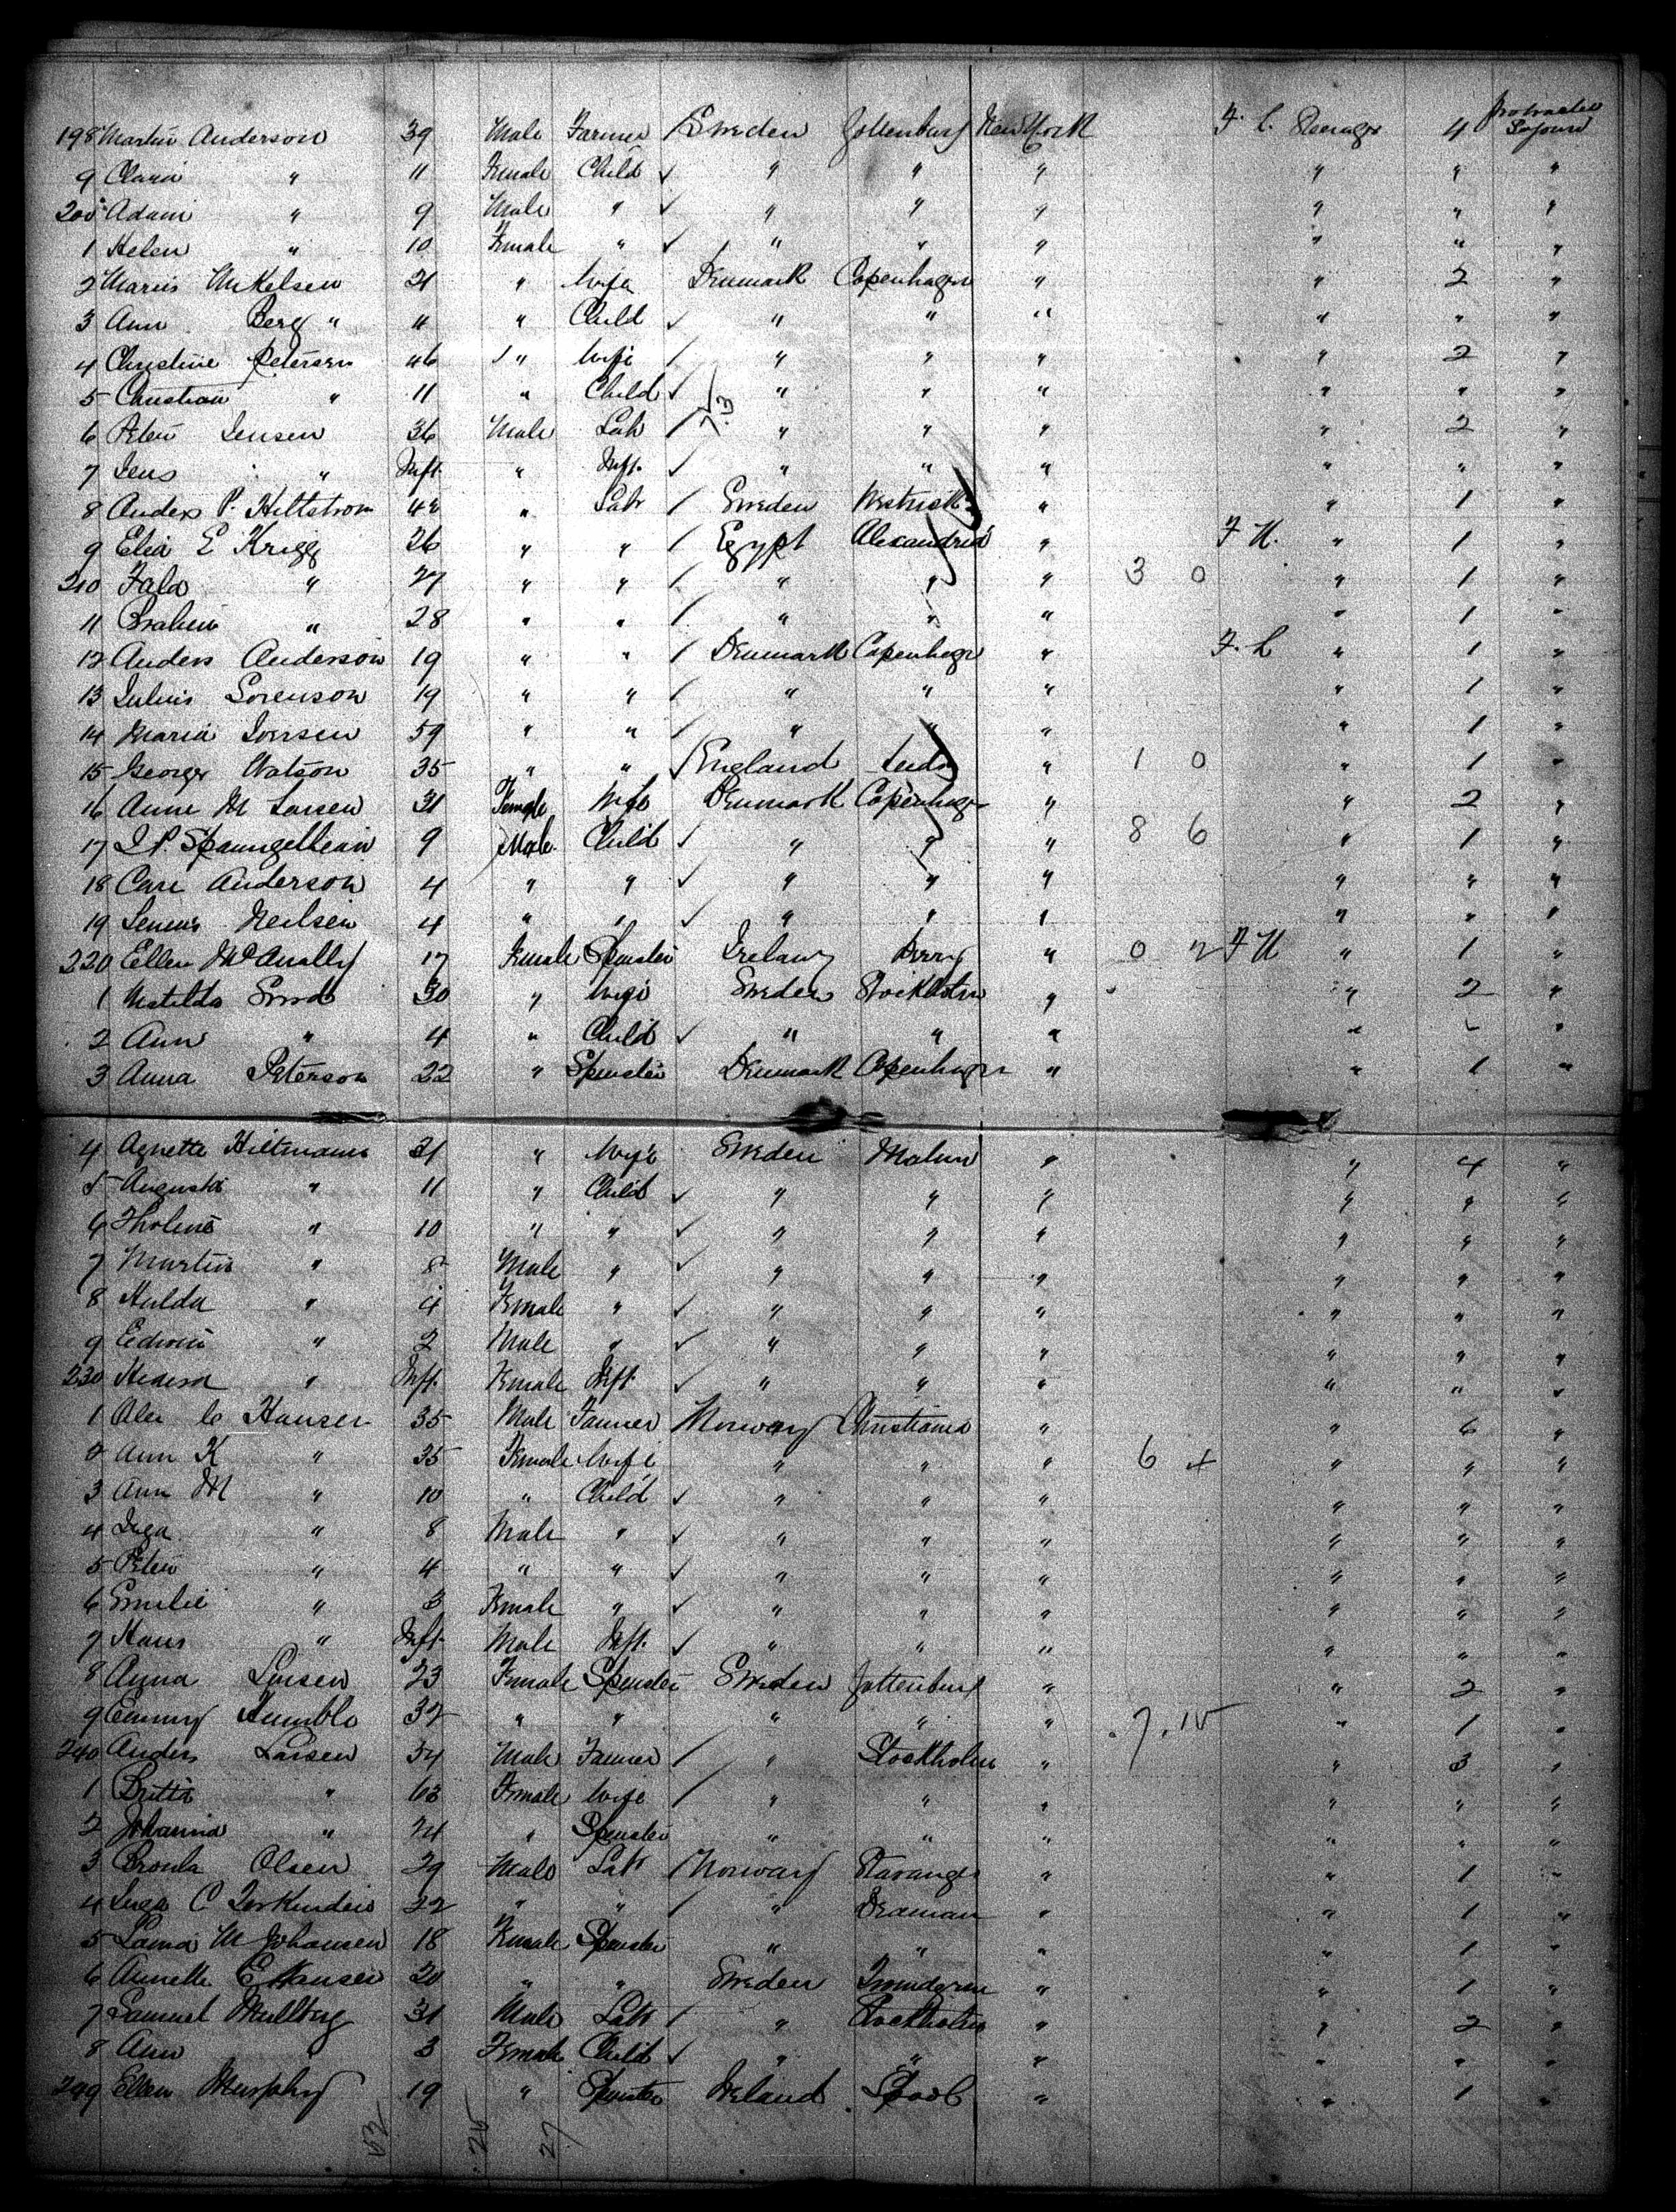 198 Martin Anderson 39 Male Farmer / Sweden Gottenburg New York F. C. Steerage 4 Protracted Sojourn
9 Clara " 11 Female Child ✓ " " " " " "
200 Adam " 9 Male " ✓ " " " " " "
1 Helen " 10 Female " ✓ " " " " " "
2 Maria Mikelsen 21 " Wife Denmark Copenhagen " " 2 "
3 Ann Berg " 11 " Child ✓ " " " " " "
4 Christine Petersen 46 " Wife / " " " " 2 "
5 Christian " 11 " Child ✓ " " " " " "
6 Peter Jensen 36 Male Lab / " " " " 2 "
7 Jens " Inft. " Inft. ✓ " " " " " "
8 Anders P. Hiltstrom 42 " Lab / Sweden " " 1 "
9 Elia E Krigg 26 " " / Egypt Alexandria " F H. " 1 "
210 Fala " 27 " " / " " " 3 0 " 1 "
11 Brahim " 28 " " / " " " " 1 "
12 Anders Anderson 19 " " / Denmark Copenhagen " F. C " 1 "
13 Julius Sorenson 19 " " / " " " " 1 "
14 Maria Jonsen 59 " " / " " " " 1 "
15 George Watson 35 " " / England Leeds " 1 0 " 1 "
16 Anne M Larsen 31 Female Wife Denmark Copenhagen " " 2 "
17 9 Male Child ✓ " " " 8 6 " 1 "
18 Carl Anderson 4 " " ✓ " " " " " "
19 Neilsen 4 " " ✓ " " " " " "
220 Ellen McAnally 17 Female Spinster Ireland Derry " 0 2 F H " 1 "
1 Matilda 30 " Wife Sweden Stockholm " " 2 "
2 Ann " 4 " Child ✓ " " " " "
3 Anna Peterson 22 " Spinster Denmark Copenhagen " " 1 "
4 Agnette Hiltmann 31 " Wife Sweden Malmo " " 4 "
5 Augusta " 11 " Child ✓ " " " " " "
6 " 10 " " ✓ " " " " " "
7 Martin " 8 Male " ✓ " " " " " "
8 Hulda " 4 Female " ✓ " " " " " "
9 Edwin " 2 Male " ✓ " " " " " "
230 " Inft. Female Inft. ✓ " " " " " "
1 Hansen 35 Male Farmer Norway Christiania " " 6 "
2 Ann K " 35 Female Wife " " " 6 4 " " "
3 Ann M " 10 " Child ✓ " " " " " "
4 Inga " 8 Male " ✓ " " " " " "
5 Peter " 4 " " ✓ " " " " " "
6 Emelie " 3 Female " ✓ " " " " " "
7 Hans " Inft. Male Inft. ✓ " " " " " "
8 Anna Larsen 23 Female Spinster Sweden Gottenburg " " 2 "
9 Emmy Humblo 32 " " " " " 7.15 " 1 "
240 Anders Larsen 54 Male Farmer / " Stockholm " " 3 "
1 Britta " 63 Female Wife / " " " " " "
2 Johanna " 24 " Spinster " " " " " "
3 Olsen 29 Male Lab / Norway Stavanger " " 1 "
4 Inga C 22 " " / " Draman " " 1 "
5 M Johansen 18 Female Spinster " " " " 1 "
6 Annette E Hansen 20 " " Sweden " " 1 "
7 Samuel Mullberg 31 Male Lab / " Stockholm " " 2 "
8 Ann " 3 Female Child ✓ " " " " " "
249 Ellen Murphy 19 " Spinster Ireland " " 1 "